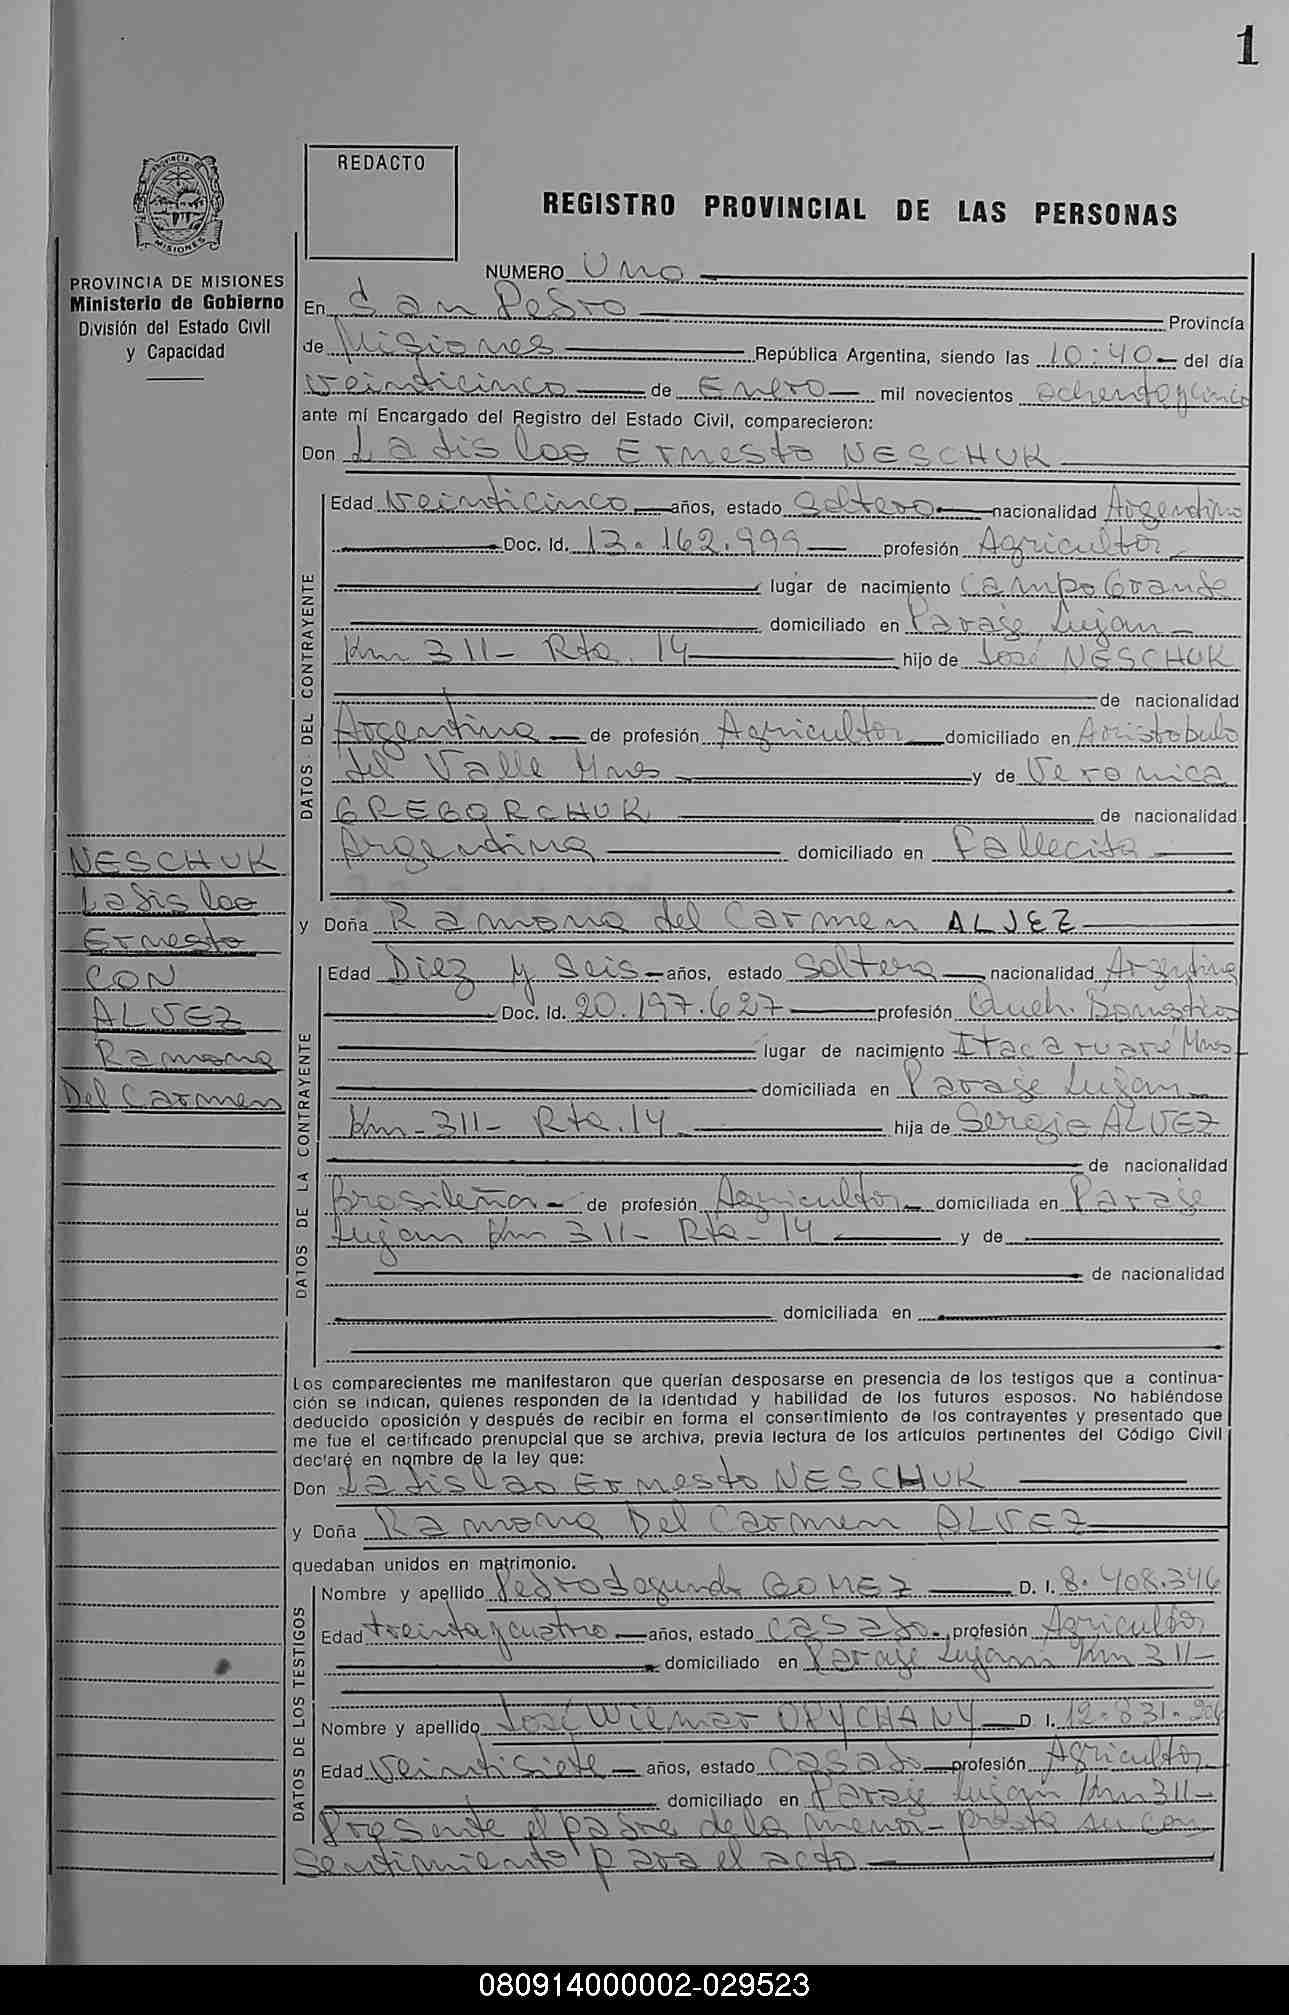 1
REDACTO
REGISTRO PROVINCIAL DE LAS PERSONAS
PROVINCIA DE MISIONES
Ministerio de Gobierno
División del Estado Civil
y Capacidad
NUMERO Uno
En San Pedro Provincia
de Misiones República Argentina, siendo las 10:40 del día
veinticinco de Enero mil novecientos ochentaycinco
ante mí Encargado del Registro del Estado Civil, comparecieron:
Don Ladislao Ernesto NESCHUK
DATOS DEL CONTRAYENTE
Edad veinticinco años, estado Soltero nacionalidad Argentino
Doc. Id. 13.162.999 profesión Agricultor
lugar de nacimiento Campo Grande
domiciliado en Paraje Lujan
Km 311- Rta. 14 hijo de José NESCHUK
de nacionalidad
Argentina de profesión Agricultor domiciliado en Aristobulo
del Valle Mnes y de Veronica
GREGORCHUK de nacionalidad
Argentina domiciliado en Fallecida
NESCHUK
Ladislao
Ernesto
CON
ALVEZ
Ramona
Del Carmen
y Doña Ramona del Carmen ALVEZ
DATOS DE LA CONTRAYENTE
Edad Diez y Seis años, estado Soltera nacionalidad Argentina
Doc. Id. 20.197.627 profesión Queh. Domesticos
lugar de nacimiento Itacaruaré Mnes
domiciliada en Paraje Lujan
Km-311- Rta.14 hija de Sergio ALVEZ
de nacionalidad
Brasileña de profesión Agricultor domiciliada en Paraje
Lujan Km 311- Rta-14 y de
de nacionalidad
domiciliada en
Los comparecientes me manifestaron que querían desposarse en presencia de los testigos que a continua-
ción se indican, quienes responden de la identidad y habilidad de los futuros esposos. No habiéndose
deducido oposición y después de recibir en forma el consentimiento de los contrayentes y presentado que
me fue el certificado prenupcial que se archiva, previa lectura de los artículos pertinentes del Código Civil
declaré en nombre de la ley que:
Don Ladislao Ernesto NESCHUK
y Doña Ramona Del Carmen ALVEZ
quedaban unidos en matrimonio.
DATOS DE LOS TESTIGOS
Nombre y apellido Pedro Segundo GOMEZ D. I. 8.408.346
Edad treintaycuatro años, estado casado profesión Agricultor
domiciliado en Paraje Lujan Km 311-
Nombre y apellido José Wilmar OPYCHANY D. I. 12.831.206
Edad veintisiete años, estado casado profesión Agricultor
domiciliado en Paraje Lujan Km 311-
Presente el padre de la menor- presta su con
sentimiento para el acto
080914000002-029523